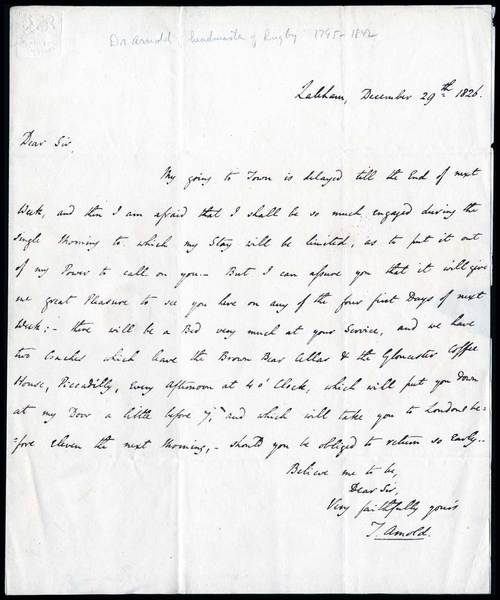 Dr. Arnold headmaster of Rugby 1795-1842
Laleham, December 29th 1826.
Dear Sir,
My going to Town is delayed till the End of next
Week, and then I am afraid that I shall be so much engaged during the
single Morning to which my Stay will be limited, as to put it out
of my Power to call on you.- But I can assure you that it will give
me great Pleasure to see you here on any of the four first Days of next
Week:- there will be a Bed very much at your Service, and we have
two Coaches which leave the Brown Bear Cellar & the Gloucester Coffee
House, Piccadilly, every afternoon at 4 o' Clock, which will put you down
at my Door a little before 7, and which will take you to London be-
=fore eleven the next Morning,- should you be obliged to return so Early.-
Believe me to be,
Dear Sir,
Very faithfully yours
T. Arnold.